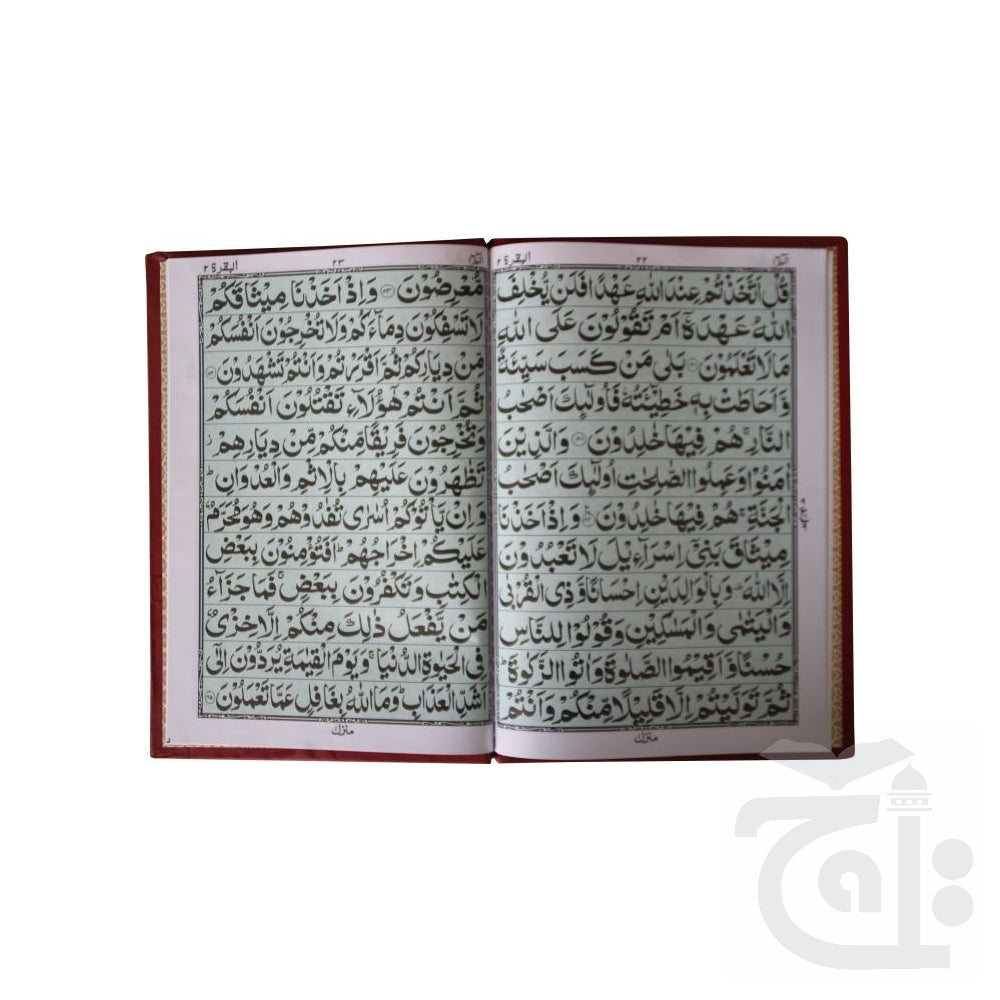 البقرة ٢
٢٢
الٓمّٓ
قُلْ اَتَّخَذْتُمْ عِنْدَ اللّٰهِ عَهْدًا فَلَنْ يُّخْلِفَ
اللّٰهُ عَهْدَهٗٓ اَمْ تَقُوْلُوْنَ عَلَى اللّٰهِ
مَا لَا تَعْلَمُوْنَ ۝ بَلٰى مَنْ كَسَبَ سَيِّئَةً
وَّاَحَاطَتْ بِهٖ خَطِيْٓـَٔتُهٗ فَاُولٰٓئِكَ اَصْحٰبُ
النَّارِ ۚ هُمْ فِيْهَا خٰلِدُوْنَ ۝ وَالَّذِيْنَ
اٰمَنُوْا وَعَمِلُوا الصّٰلِحٰتِ اُولٰٓئِكَ اَصْحٰبُ
الْجَنَّةِ ۚ هُمْ فِيْهَا خٰلِدُوْنَ ۝ وَاِذْ اَخَذْنَا
مِيْثَاقَ بَنِىْٓ اِسْرَآءِيْلَ لَا تَعْبُدُوْنَ
اِلَّا اللّٰهَ ۫ وَبِالْوَالِدَيْنِ اِحْسَانًا وَّذِى الْقُرْبٰى
وَالْيَتٰمٰى وَالْمَسٰكِيْنِ وَقُوْلُوْا لِلنَّاسِ
حُسْنًا وَّاَقِيْمُوا الصَّلٰوةَ وَاٰتُوا الزَّكٰوةَ ؕ
ثُمَّ تَوَلَّيْتُمْ اِلَّا قَلِيْلًا مِّنْكُمْ وَاَنْتُمْ
منزل
البقرة ٢
٢٣
الٓمّٓ
مُّعْرِضُوْنَ ۝ وَاِذْ اَخَذْنَا مِيْثَاقَكُمْ
لَا تَسْفِكُوْنَ دِمَآءَكُمْ وَلَا تُخْرِجُوْنَ اَنْفُسَكُمْ
مِّنْ دِيَارِكُمْ ثُمَّ اَقْرَرْتُمْ وَاَنْتُمْ تَشْهَدُوْنَ ۝
ثُمَّ اَنْتُمْ هٰٓؤُلَآءِ تَقْتُلُوْنَ اَنْفُسَكُمْ
وَتُخْرِجُوْنَ فَرِيْقًا مِّنْكُمْ مِّنْ دِيَارِهِمْ ز
تَظٰهَرُوْنَ عَلَيْهِمْ بِالْاِثْمِ وَالْعُدْوَانِ ؕ
وَاِنْ يَّاْتُوْكُمْ اُسٰرٰى تُفٰدُوْهُمْ وَهُوَ مُحَرَّمٌ
عَلَيْكُمْ اِخْرَاجُهُمْ ؕ اَفَتُؤْمِنُوْنَ بِبَعْضِ
الْكِتٰبِ وَتَكْفُرُوْنَ بِبَعْضٍ ۚ فَمَا جَزَآءُ
مَنْ يَّفْعَلُ ذٰلِكَ مِنْكُمْ اِلَّا خِزْىٌ
فِى الْحَيٰوةِ الدُّنْيَا ۚ وَيَوْمَ الْقِيٰمَةِ يُرَدُّوْنَ اِلٰٓى
اَشَدِّ الْعَذَابِ ؕ وَمَا اللّٰهُ بِغَافِلٍ عَمَّا تَعْمَلُوْنَ ۝
منزل